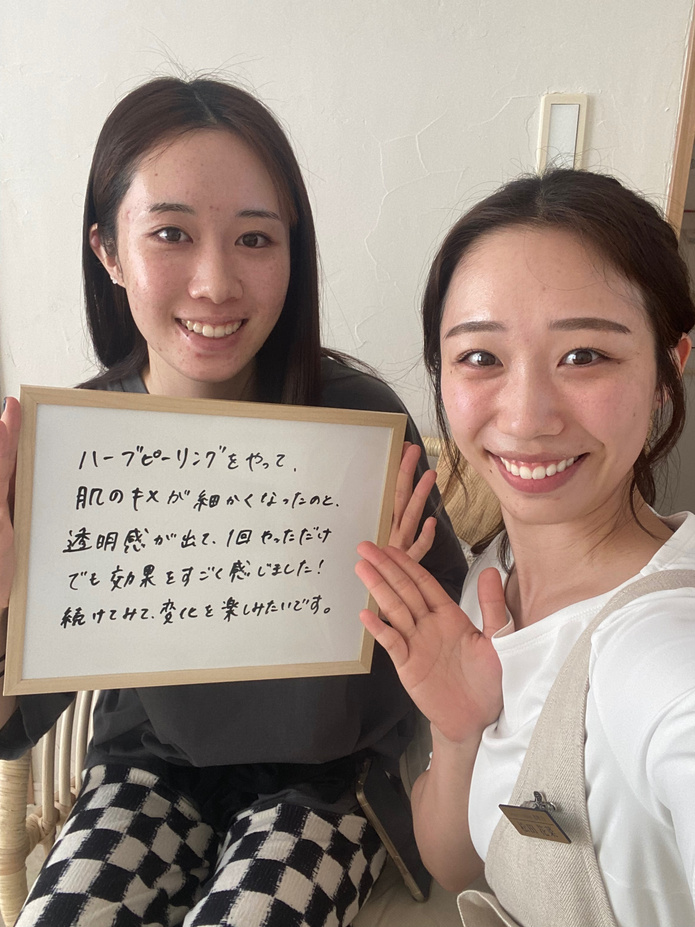 ハーブピーリングをやって、
肌のキメが細かくなったのと、
透明感が出て、1回やっただけ
でも効果をすごく感じました!
続けてみて、変化を楽しみたいです。